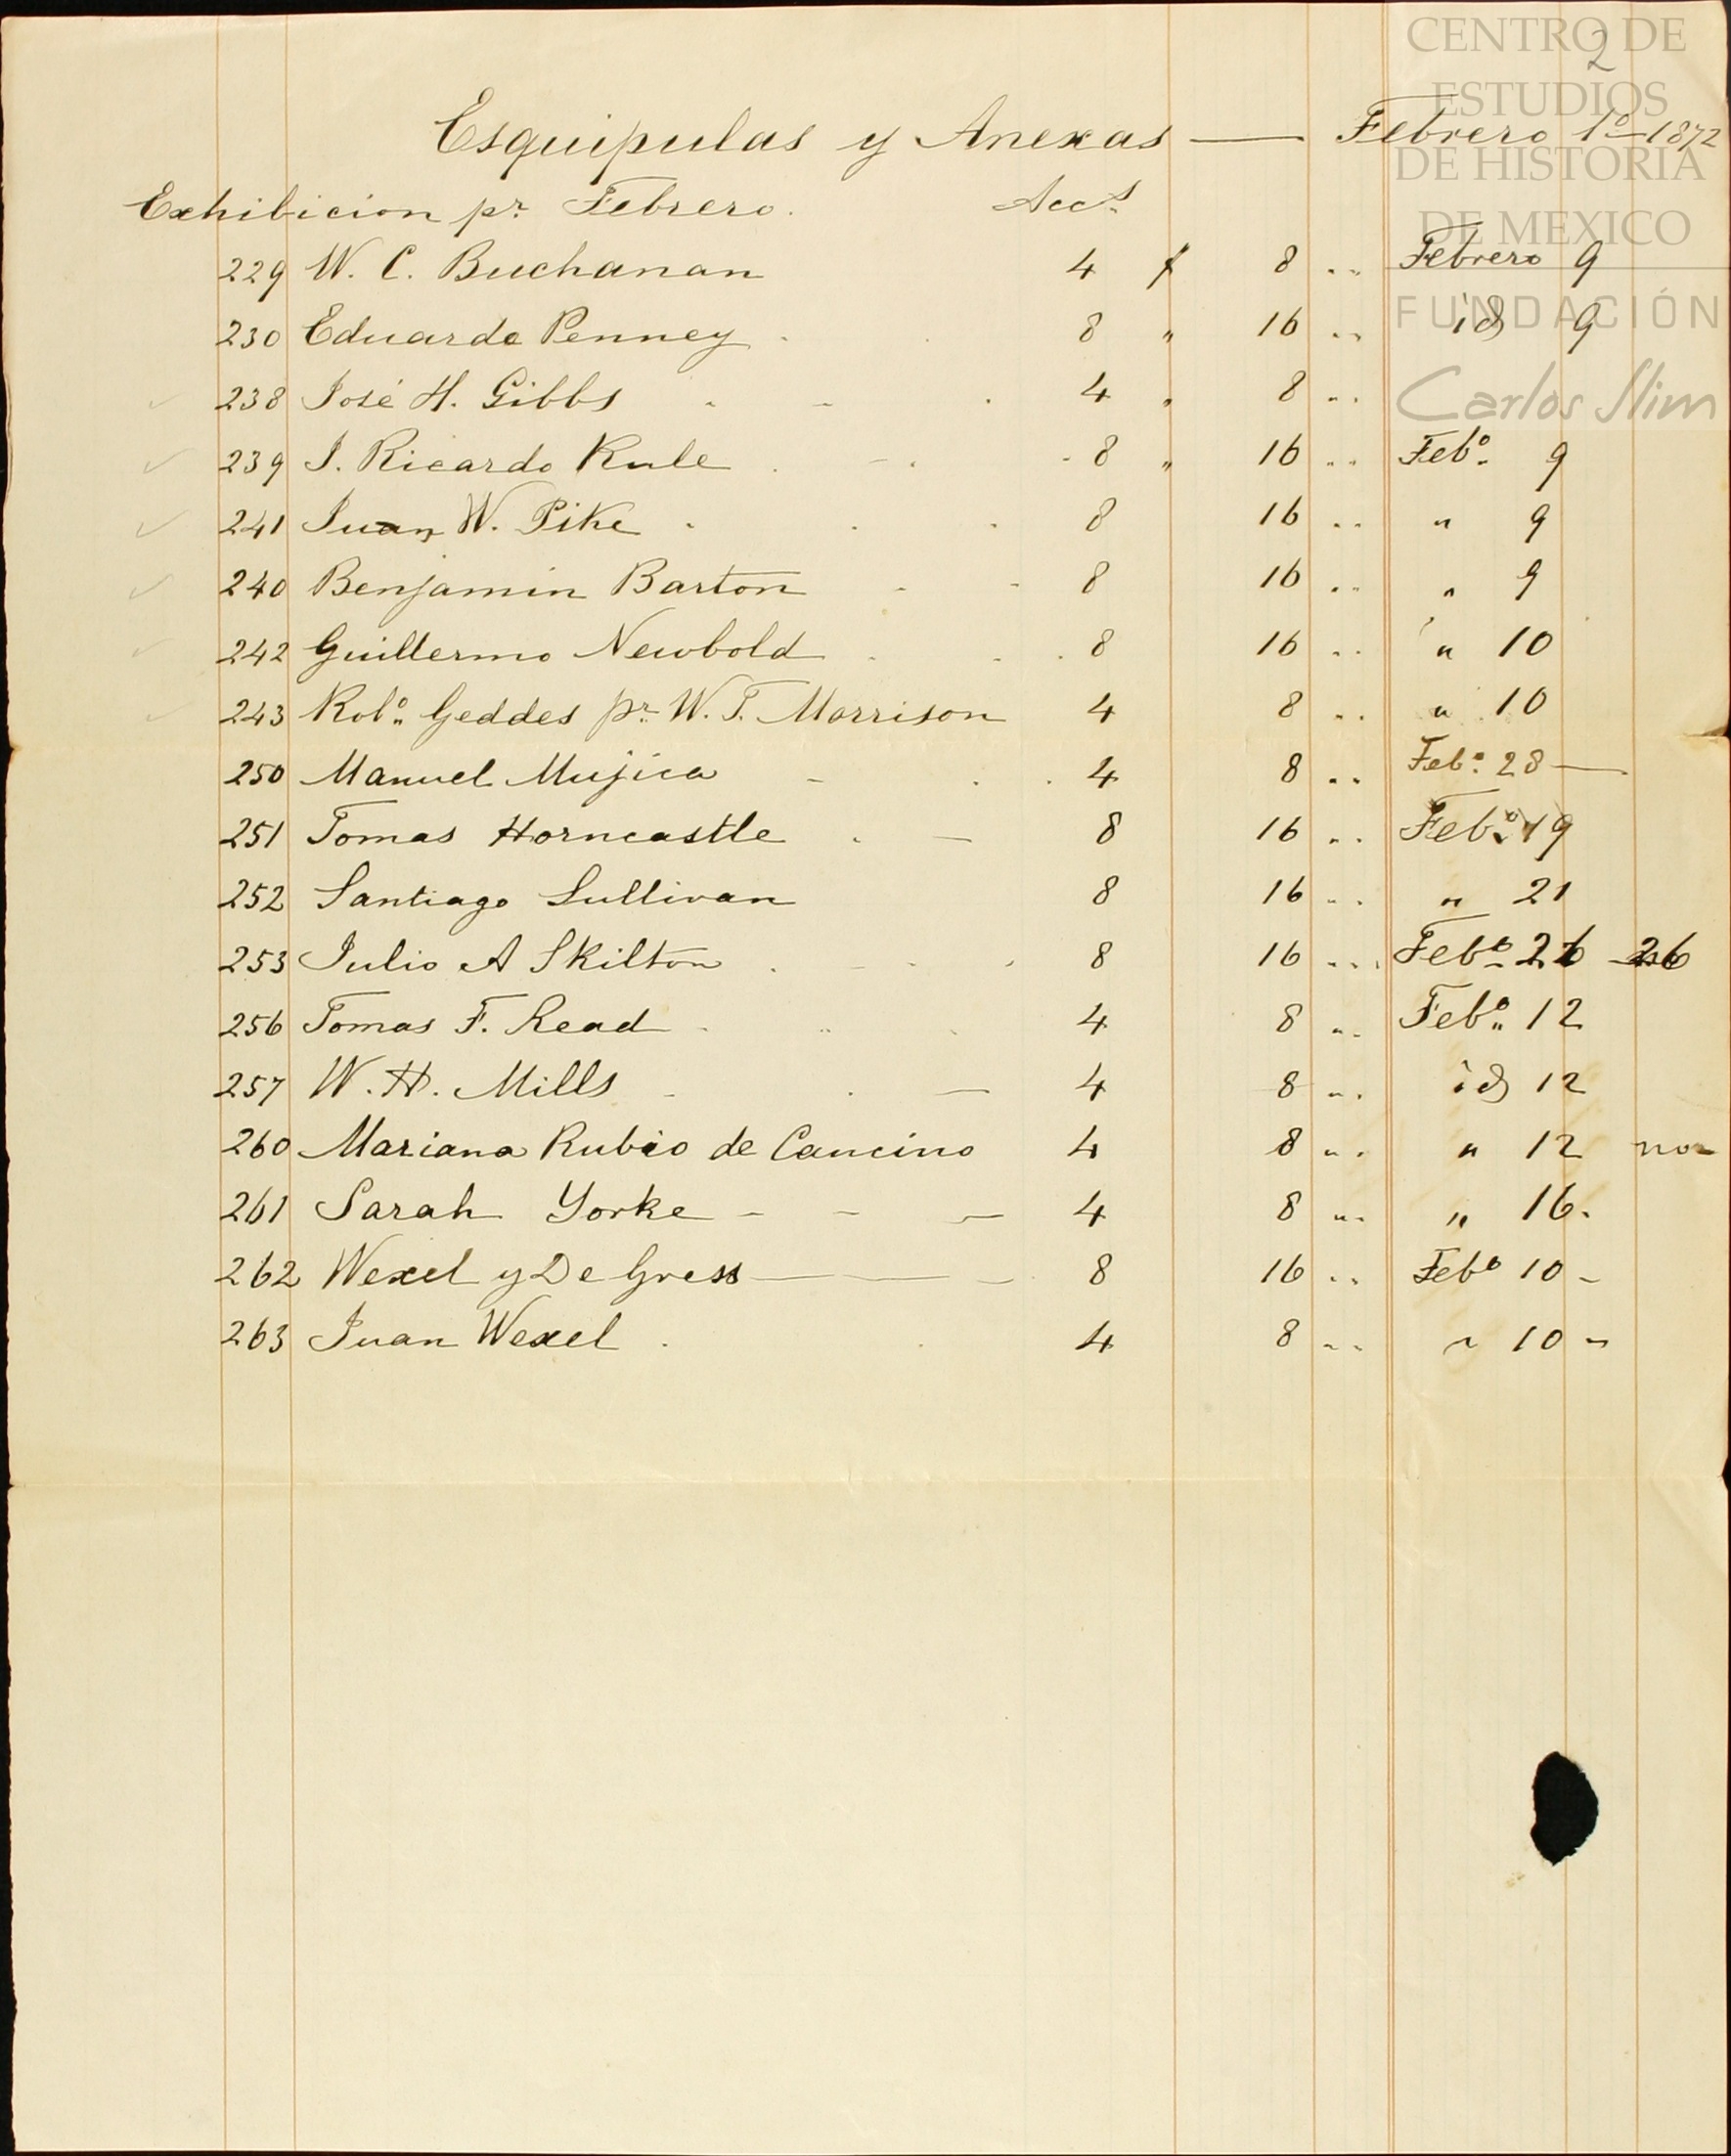 CENTRO DE
2
ESTUDIOS
DE HISTORIA
DE MEXICO
FUNDACIÓN
Carlos Slim
Esquipulas y Anexas — Febrero 1º 1872
Exhibicion pr. Febrero. Accs.
229 W. C. Buchanan 4 $ 8 .. Febrero 9
230 Eduardo Penney 8 " 16 .. id 9
238 José H. Gibbs 4 " 8 ..
239 J. Ricardo Rule 8 " 16 .. Febº 9
241 Juan W. Pike 8 16 .. " 9
240 Benjamin Barton 8 16 .. " 9
242 Guillermo Newbold 8 16 .. " 10
243 Robº Geddes pr. W. T. Morrison 4 8 .. " 10
250 Manuel Mujica 4 8 .. Febº 28 —
251 Tomas Horncastle 8 16 .. Febº 19
252 Santiago Sullivan 8 16 .. " 21
253 Julio A Skilton 8 16 .. Febº 26 26
256 Tomas F. Read 4 8 .. Febº 12
257 W. H. Mills 4 8 .. id 12
260 Mariana Rubio de Cancino 4 8 .. " 12 no
261 Sarah Yorke 4 8 .. " 16.
262 Wexel y De Gress 8 16 .. Febº 10 -
263 Juan Wexel 4 8 .. " 10 "